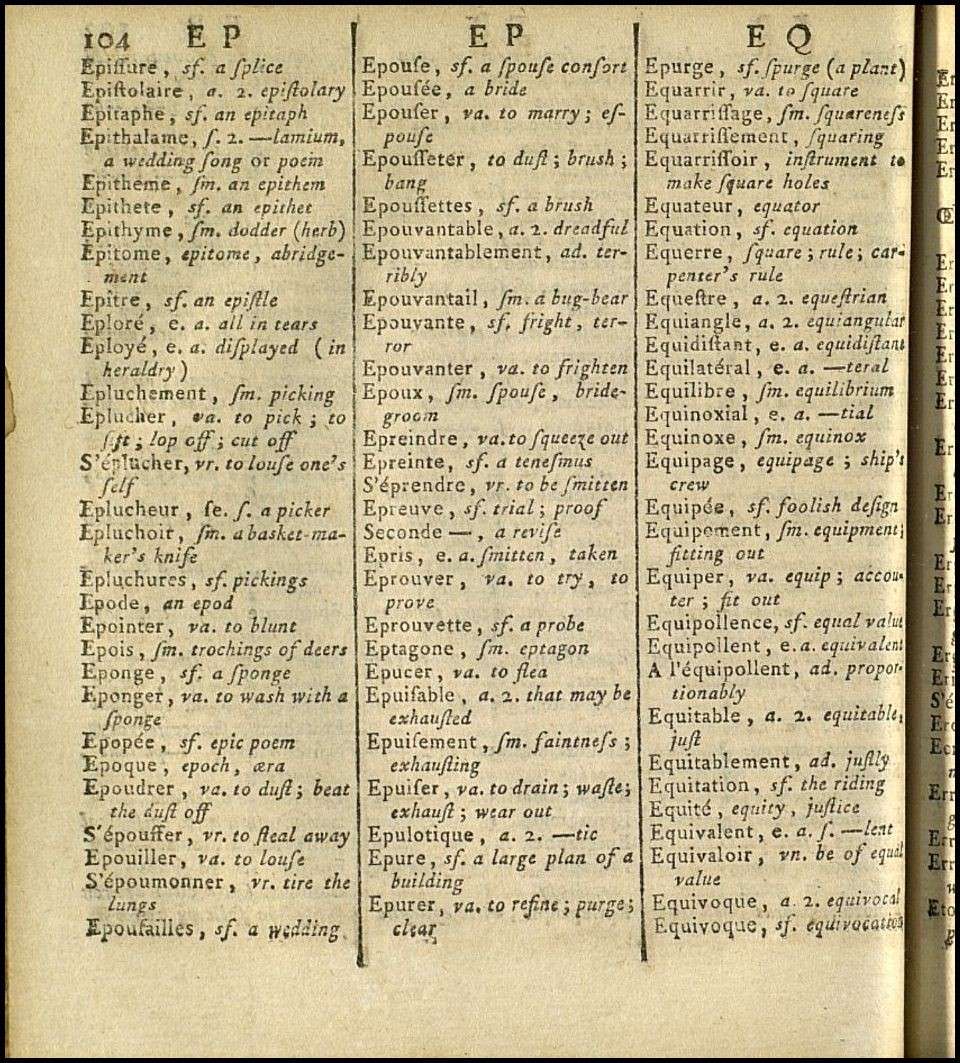 104 E P
Epiſſure, sf. a ſplice
Epiſtolaire, a. 2. epiſtolary
Epitaphe, sf. an epitaph
Epithalame, ſ. 2. —lamium,
a wedding ſong or poem
Epitheme, ſm. an epithem
Epithete, sf. an epithet
Epithyme, ſm. dodder (herb)
Epitome, epitome, abridge-
ment
Epitre, sf. an epiſtle
Eploré, e. a. all in tears
Eployé, e. a. diſplayed (in
heraldry)
Epluchement, ſm. picking
Eplucher, va. to pick; to
ſift; lop off; cut off
S'éplucher, vr. to louſe one's
ſelf
Eplucheur, ſe. ſ. a picker
Epluchoir, ſm. a basket-ma-
ker's knife
Epluchures, sf. pickings
Epode, an epod
Epointer, va. to blunt
Epois, ſm. trochings of deers
Eponge, sf. a ſponge
Eponger, va. to wash with a
ſponge
Epopée, sf. epic poem
Epoque, epoch, æra
Epoudrer, va. to duſt; beat
the duſt off
S'épouffer, vr. to ſteal away
Epouiller, va. to louſe
S'époumonner, vr. tire the
lungs
Epouſailles, sf. a wedding
E P
Epouſe, sf. a ſpouſe conſort
Epouſée, a bride
Epouſer, va. to marry; eſ-
pouſe
Epouſſeter, to duſt; brush;
bang
Epouſſettes, sf. a brush
Epouvantable, a. 2. dreadful
Epouvantablement, ad. ter-
ribly
Epouvantail, ſm. a bug-bear
Epouvante, sf. fright, ter-
ror
Epouvanter, va. to frighten
Epoux, ſm. ſpouſe, bride-
groom
Epreindre, va. to ſqueeze out
Epreinte, sf. a teneſmus
S'éprendre, vr. to be ſmitten
Epreuve, sf. trial; proof
Seconde —, a reviſe
Epris, e. a. ſmitten, taken
Eprouver, va. to try, to
prove
Eprouvette, sf. a probe
Eptagone, ſm. eptagon
Epucer, va. to flea
Epuiſable, a. 2. that may be
exhauſted
Epuiſement, ſm. faintneſs;
exhauſting
Epuiſer, va. to drain; waſte;
exhauſt; wear out
Epulotique, a. 2. —tic
Epure, sf. a large plan of a
building
Epurer, va. to refine; purge;
clear
E Q
Epurge, sf. ſpurge (a plant)
Equarrir, va. to ſquare
Equarriſſage, ſm. ſquareneſs
Equarriſſement, ſquaring
Equarriſſoir, inſtrument to
make ſquare holes
Equateur, equator
Equation, sf. equation
Equerre, ſquare; rule; car-
penter's rule
Equeſtre, a. 2. equeſtrian
Equiangle, a. 2. equiangular
Equidiſtant, e. a. equidiſtant
Equilatéral, e. a. —teral
Equilibre, ſm. equilibrium
Equinoxial, e. a. —tial
Equinoxe, ſm. equinox
Equipage, equipage; ship's
crew
Equipée, sf. foolish deſign
Equipement, ſm. equipment;
fitting out
Equiper, va. equip; accou-
ter; fit out
Equipollence, sf. equal value
Equipollent, e. a. equivalent
A l'équipollent, ad. propor-
tionably
Equitable, a. 2. equitable,
juſt
Equitablement, ad. juſtly
Equitation, sf. the riding
Equité, equity, juſtice
Equivalent, e. a. ſ. —lent
Equivaloir, vn. be of equal
value
Equivoque, a. 2. equivocal
Equivoque, sf. equivocation